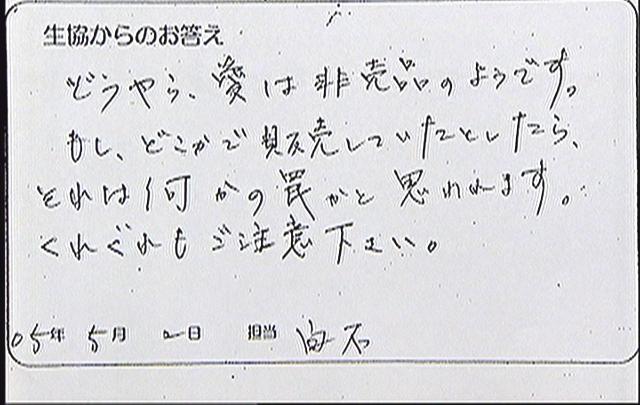 生協からのお答え
どうやら、愛は非売品のようです。
もし、どこかで販売していたとしたら、
それは何かの罠かと思われます。
くれぐれもご注意下さい。
05年 5月 2日 担当 白石